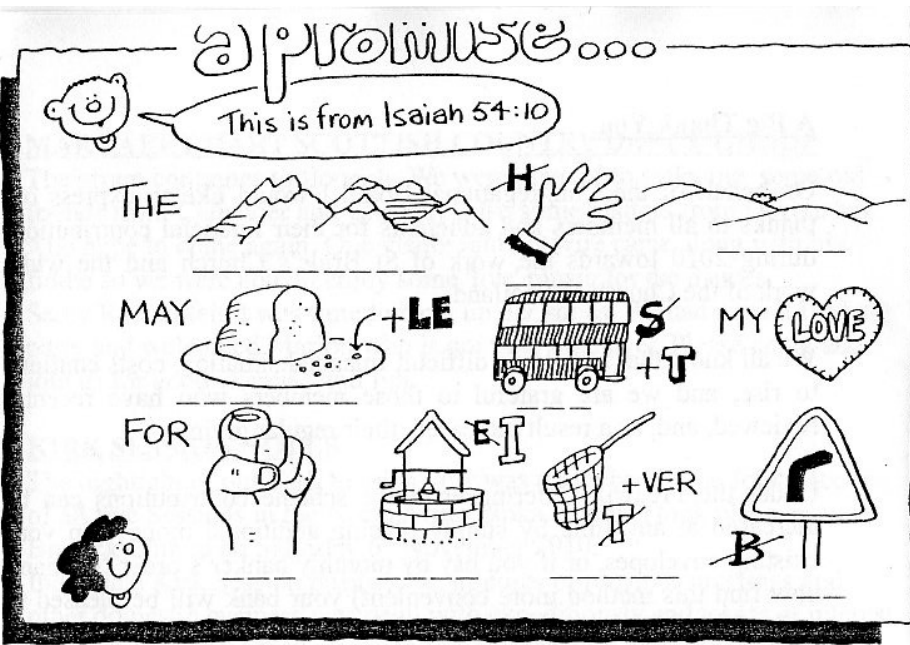 a promise...
This is from Isaiah 54:10
THE H
MAY +LE S +T MY LOVE
FOR E I +VER T B